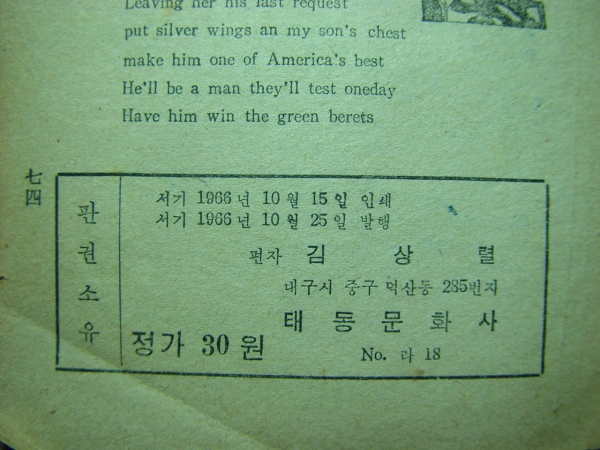 Leaving her his last request
put silver wings an my son's chest
make him one of America's best
He'll be a man they'll test oneday
Have him win the green berets
七四
판권소유
서기 1966년 10월 15일 인쇄
서기 1966년 10월 25일 발행
편자 김 상 렬
대구시 중구 덕산동 285번지
태 동 문 화 사
정가 30원
No. 라 18